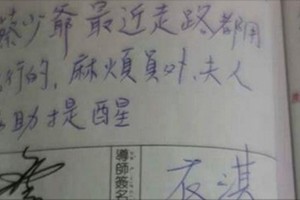 蔡少爺最近走路都用
行的,麻煩員外,夫人
助提醒
導師簽名
衣淇